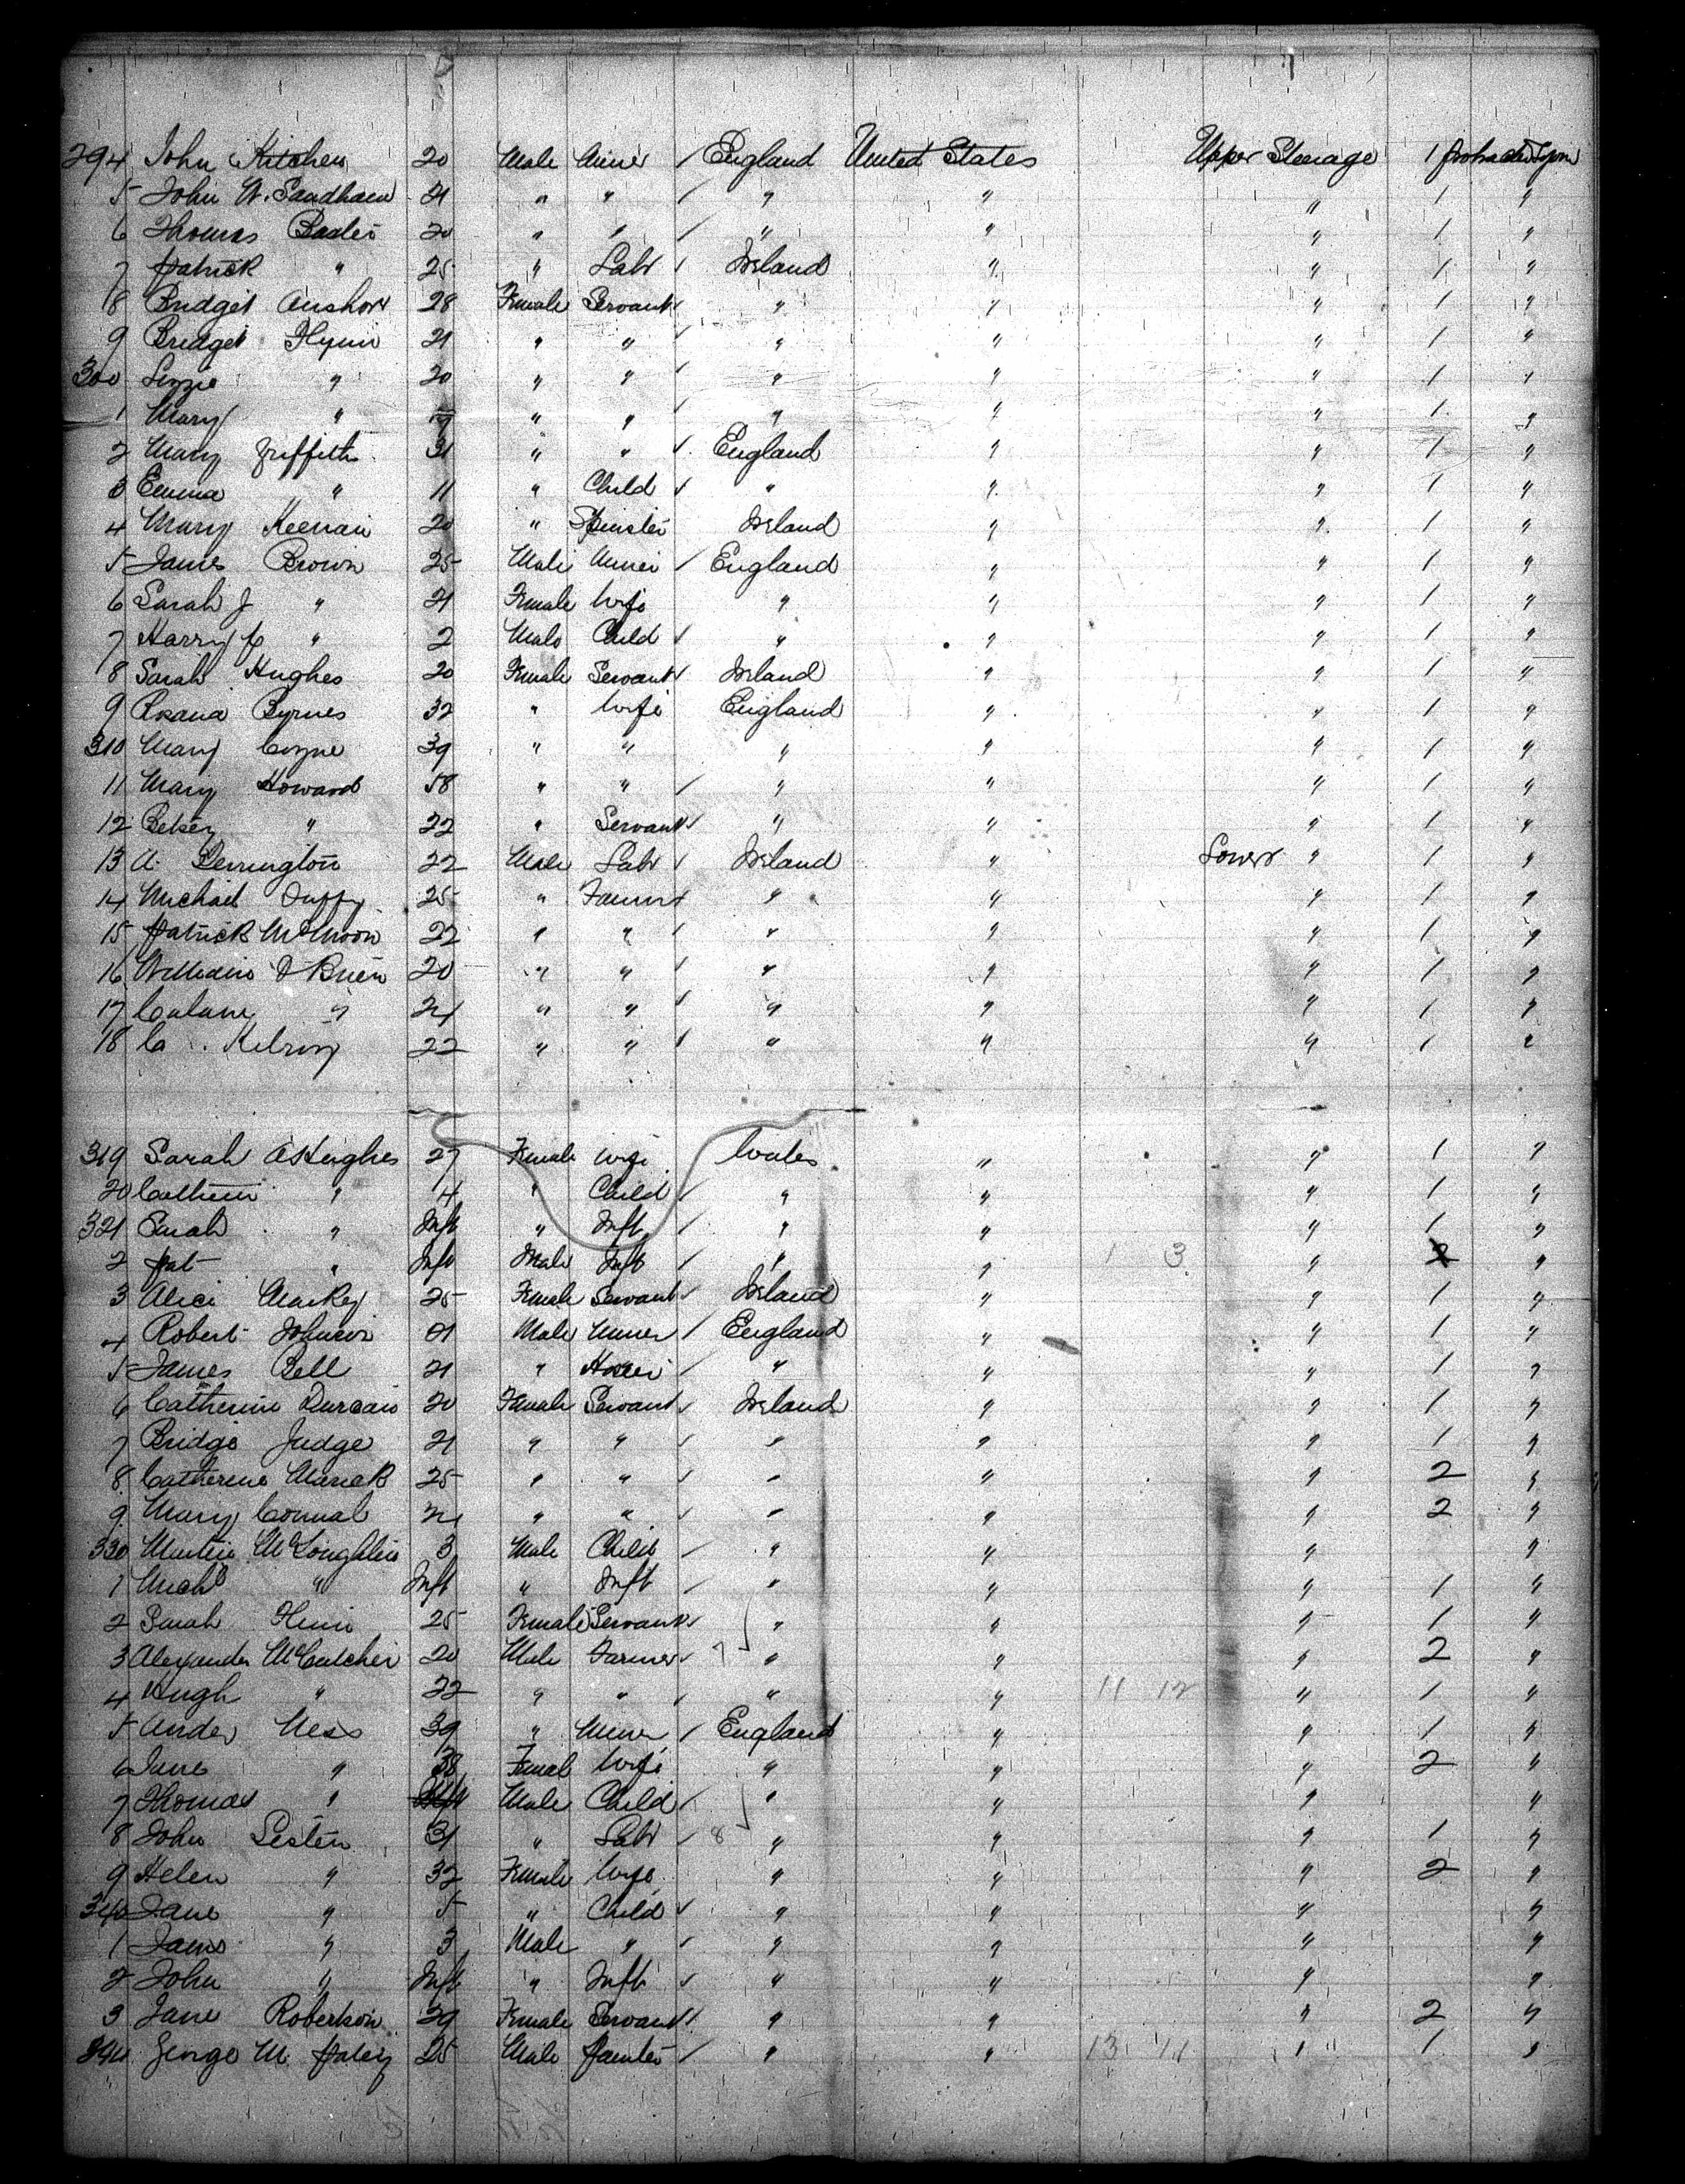 294 John Kitchen 20 Male Miner / England United States Upper Steerage 1 Protracted Sojourn
5 John W. Sandham 21 " " / " " " 1 "
6 Thomas 20 " " / " " " 1 "
7 Patrick " 25 " Labr / Ireland " " 1 "
8 Bridget 28 Female Servant / " " " 1 "
9 Bridget Flynn 21 " " / " " " 1 "
300 Lizzie " 20 " " / " " " 1 "
1 Mary " 19 " " / " " " 1 "
2 Mary Griffiths 31 " " / England " " 1 "
3 Emma " 11 " Child / " " " 1 "
4 Mary Keenan 20 " Spinster Ireland " " 1 "
5 James Brown 25 Male Miner / England " " 1 "
6 Sarah J " 21 Female Wife " " " 1 "
7 Harry C " 2 Male Child / " " " 1 "
8 Sarah Hughes 20 Female Servant / Ireland " " 1 "
9 Roxana Byrnes 32 " Wife England " " 1 "
310 Mary Coyne 39 " " " " " 1 "
11 Mary Howard 58 " " / " " " 1 "
12 Betsey " 22 " Servant / " " " 1 "
13 A. Derrington 22 Male Labr / Ireland " Lower " 1 "
14 Michael Duffy 25 " Farmer / " " " 1 "
15 Patrick McMoon 22 " " / " " " 1 "
16 William O'Brien 20 " " / " " " 1 "
17 " 21 " " / " " " 1 "
18 22 " " / " " " 1 "
319 Sarah A Hughes 27 Female Wife Wales " " 1 "
20 Catherin " 4 " Child / " " " 1 "
321 Sarah " Inft " Inft / " " " 1 "
2 Pat " Inft Male Inft / " " 1 3 " 2 "
3 Alice Markey 25 Female Servant / Ireland " " 1 "
4 Robert Johnson 21 Male Miner / England " " 1 "
5 James Bell 21 " / " " " 1 "
6 Catherine Durcan 20 Female Servant / Ireland " " 1 "
7 Bridge Judge 21 " " / " " " 1 "
8 Catherine 25 " " / " " " 2 "
9 Mary Connal 21 " " / " " " 2 "
330 Martin McLoughlin 3 Male Child / " " " "
1 Michl " Inft " Inft / " " " 1 "
2 Sarah 25 Female Servant / " " " 1 "
3 Alexander McCutchen 20 Male Farmer / 7 " " " 2 "
4 Hugh " 22 " " / " " 11 12 " 1 "
5 Andw Ness 39 " Miner / England " " 1 "
6 Jane " 38 Femal Wife " " " 2 "
7 Thomas " Male Child / " " " "
8 John Lesten 31 " Labr / 8 " " " 1 "
9 Helen " 32 Female Wife " " " 2 "
340 Jane " 5 " Child / " " " "
1 James " 3 Male " / " " " "
2 John " Inft " Inft / " " " "
3 Jane Robertson 29 Female Servant / " " " 2 "
344 George M. Paley 25 Male Painter / " " 13 11 " 1 "